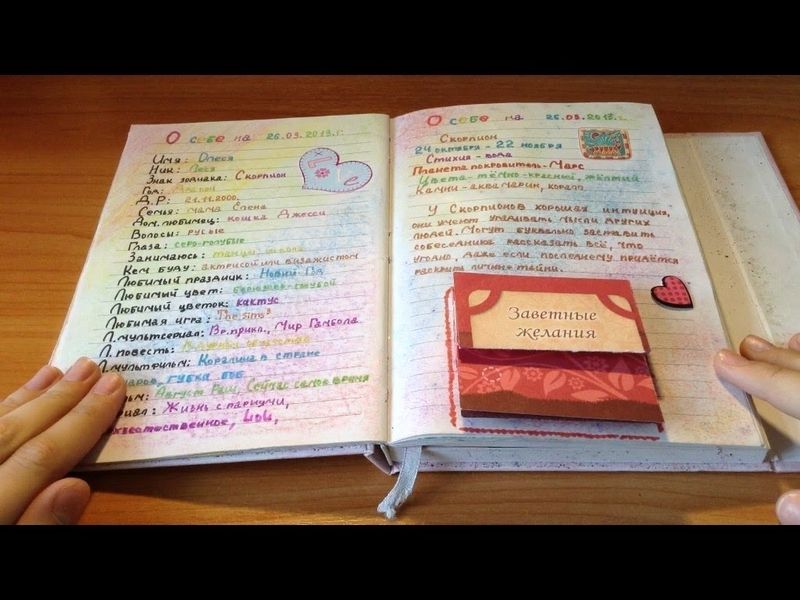 О себе на 26.03.2013.г.
Имя: Олеся
Ник: Леся
Знак зодиака: Скорпион
Год: Дракон
Д.Р: 21.11.2000.
Семья: мама Елена
Дом.любимец: кошка Джесси
Волосы: русые
Глаза: серо-голубые
Занимаюсь: танцы,
Кем буду: актрисой или визажистом
Любимый праздник: Новый Год
Любимый цвет: бирюзово-голубой
Любимый цветок: кактус
Любимая игра: The Sims 3
Л.мультсериал: Вр.прикл., Мир Гамбола
Л.повесть:
Л.мультфильм: Коралина в стране
кошмаров, губка боб
Фильм: Август Раш, Сейчас самое время
Сериал: Жизнь с парнуми,
Сверхъестественное, LoL,
О себе на 26.03.2013.г.
Скорпион
24 октября - 22 ноября
Стихия - вода
Планета покровитель-Марс
Цвета-тёмно-красный, жёлтый
Камни-аквамарин, коралл
У Скорпионов хорошая интуиция,
они умеют угадывать мысли других
людей. Могут буквально заставить
собеседника рассказать всё, что
угодно, даже если последнему придётся
раскрыть личные тайны.
Заветные
желания